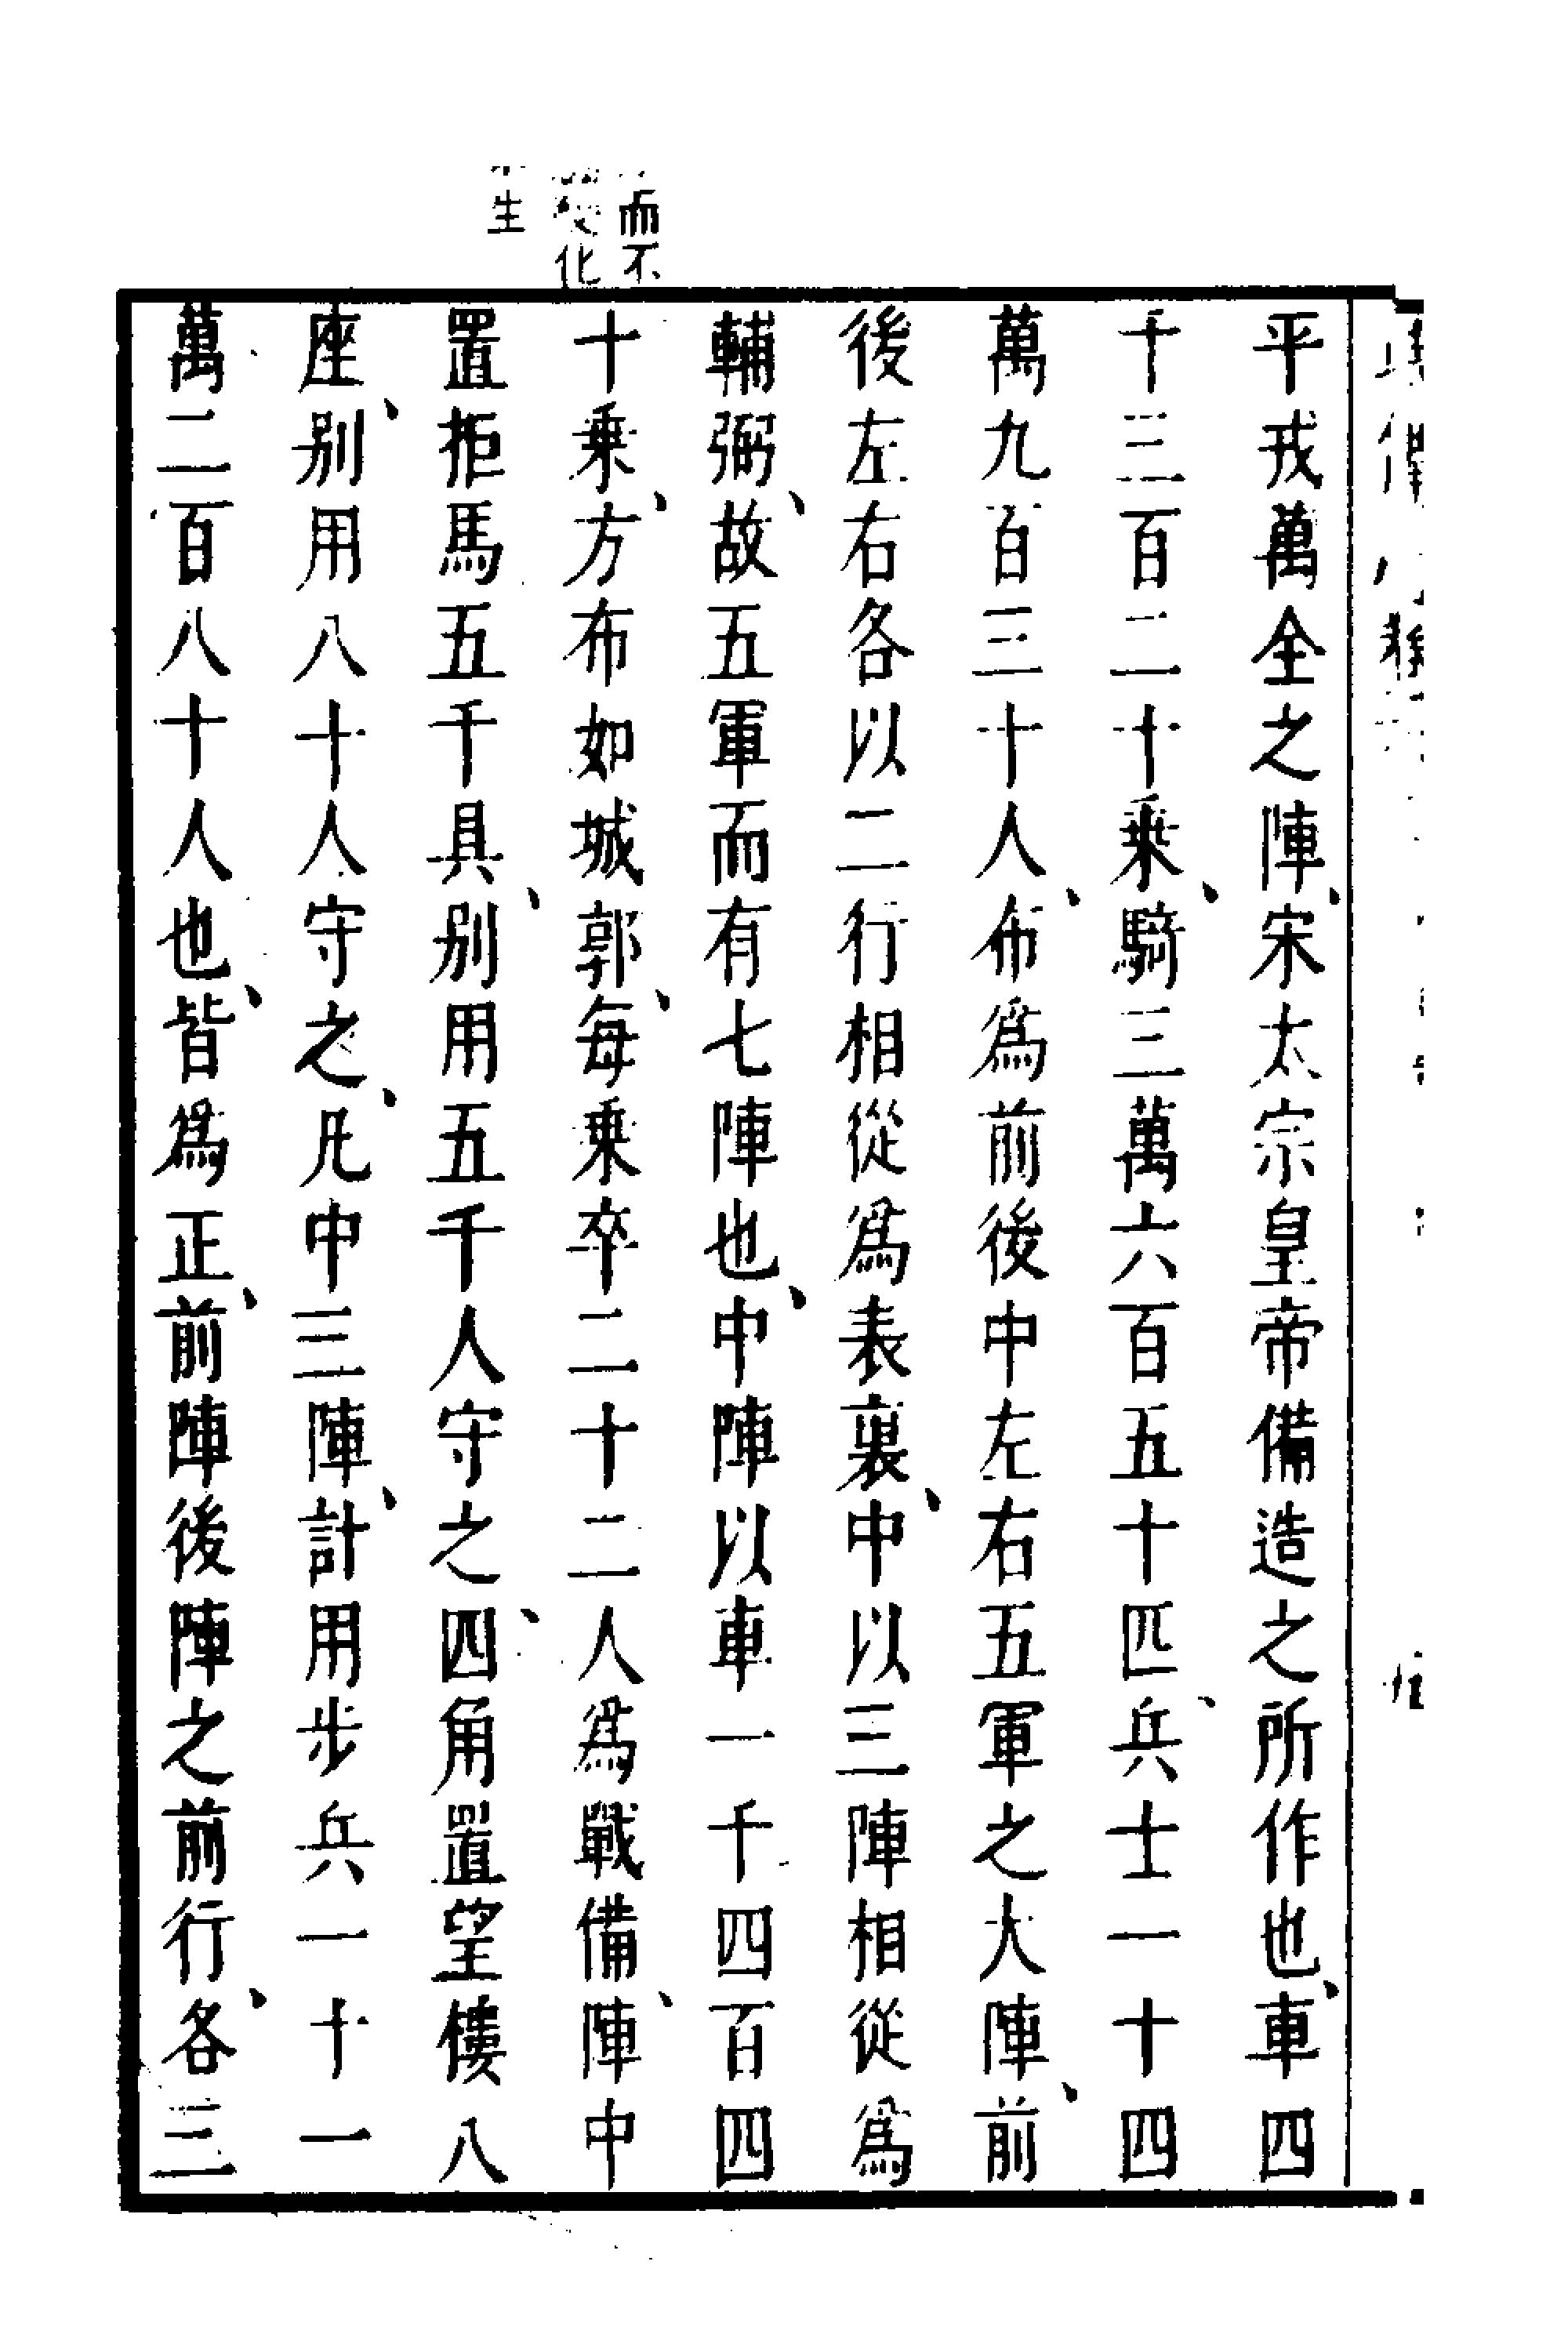 而不
化
生
平戎萬全之陣、宋太宗皇帝備造之所作也、車四
千三百二十乗、騎三萬六百五十匹、兵士一十四
萬九百三十人、布爲前後中左右五軍之大陣、前
後左右各以二行相從爲表裏、中以三陣相從爲
輔弼、故五軍而有七陣也、中陣以車一千四百四
十乗、方布如城郭、每乗卒二十二人爲戰備、陣中
置拒馬五千具、别用五千人守之、四角置望樓八
座、别用八十人守之、凡中三陣、計用步兵一十一
萬二百八十人也、皆爲正、前陣後陣之前行、各三